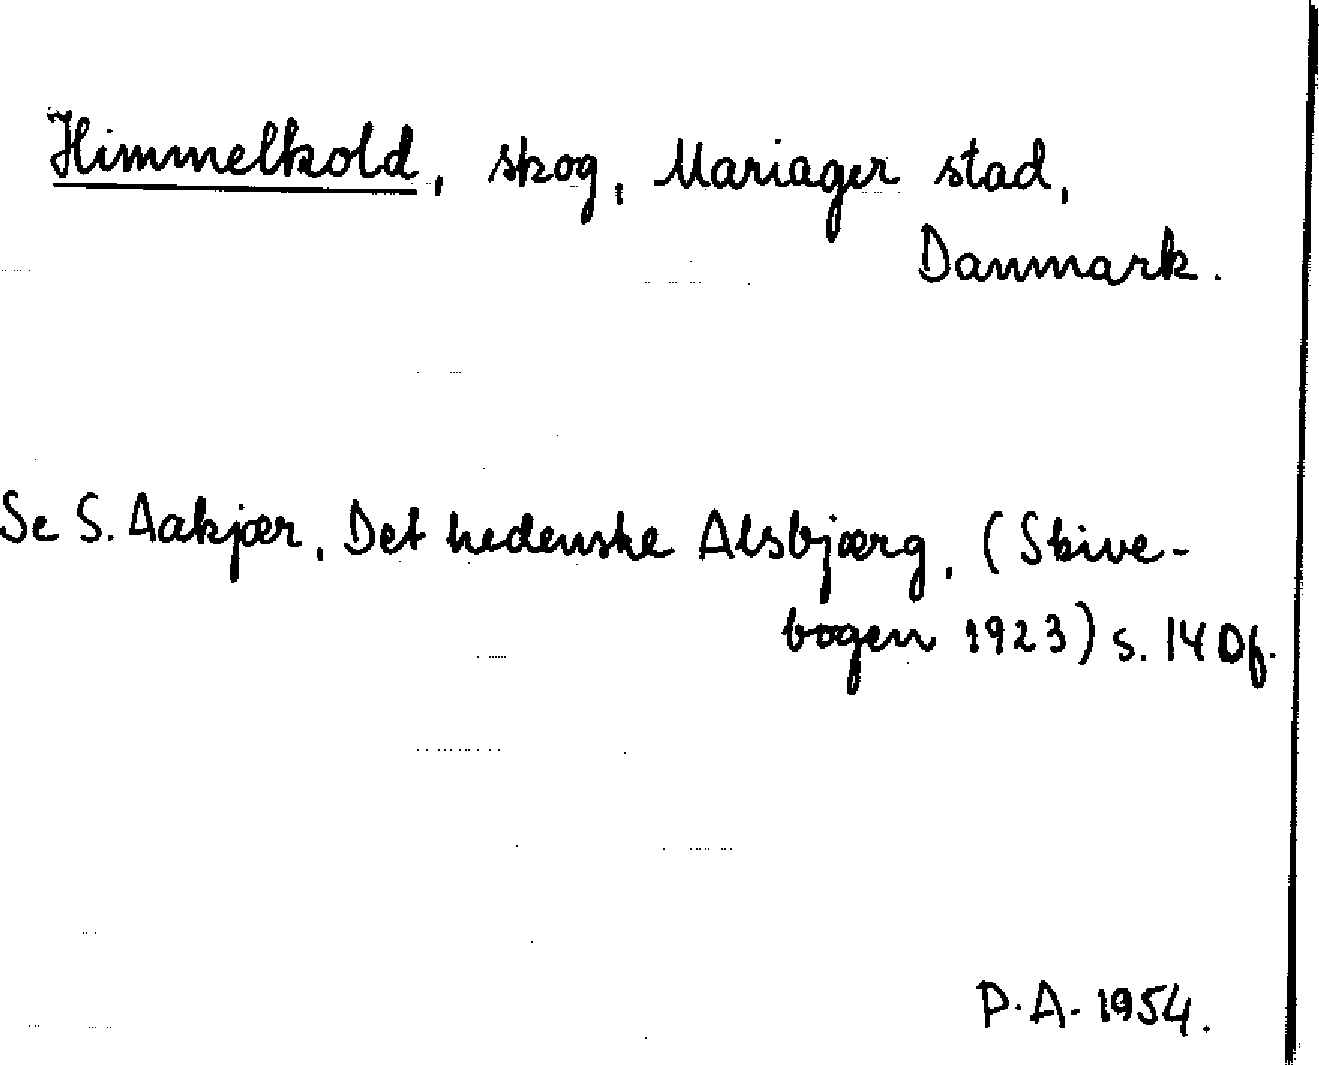 Himmelkold, skog, Mariager stad,
Danmark.
Se S. Aakjær, Det hedenske Alsbjærg, (Skive-
bogen 1923) s. 140f.
P.A. 1954.